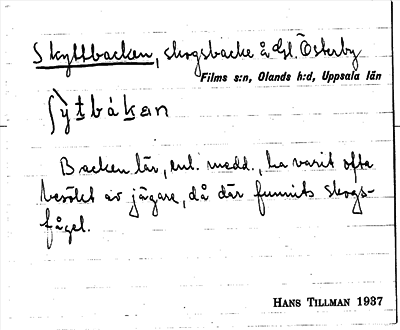 Skyttbacken, skogsbacke å Gl. Österby
Films s:n, Olands h:d, Uppsala län
ʃỳtbákan
Backen lär, enl. medd., ha varit ofta
besökt av jägare, då där funnits skogs-
fågel.
HANS TILLMAN 1937